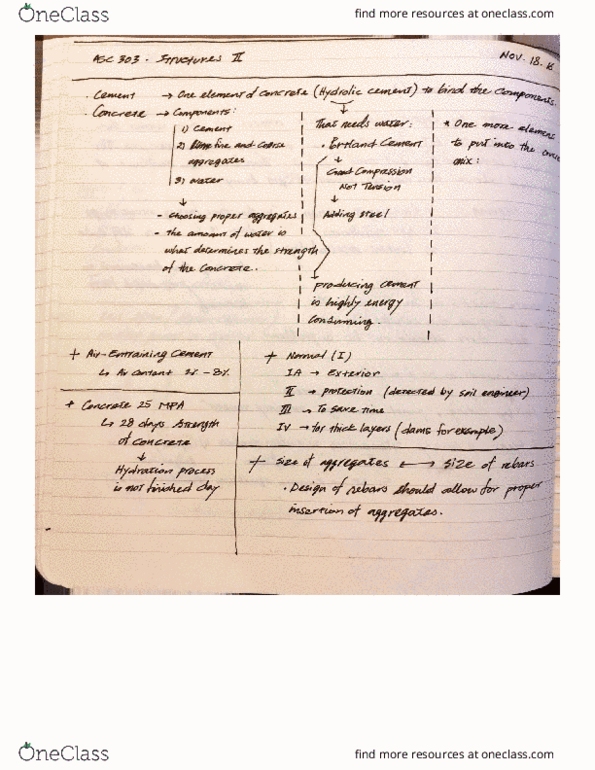 OneClass
find more resources at oneclass.com
ASC 303 - Structures II
NOV. 18.
. Cement → One element of concrete (Hydrolic cement) to bind the components.
. Concrete → Components:
1) Cement
2) fine and coarse
aggregates
3) water
- choosing proper aggregates
- the amount of water is
what determines the strength
of the concrete..
That needs water:
. Portland Cement
↓ Good Compression
Not Tension
↓
Adding steel
producing cement
is highly energy
consuming.
* One more element
to put into the
mix:
+ Air-Entraining Cement
↳ Air content - 8%
* Concrete 25 MPA
↳ 28 days strength
of concrete
↓
Hydration process
is not finished day
+ Normal (I)
IA → Exterior
II → protection (detected by soil engineer)
III → To save time
IV → for thick layers (dams for example)
+ Size of aggregates ⟷ size of rebars
. Design of rebars should allow for proper
insertion of aggregates.
OneClass
find more resources at oneclass.com